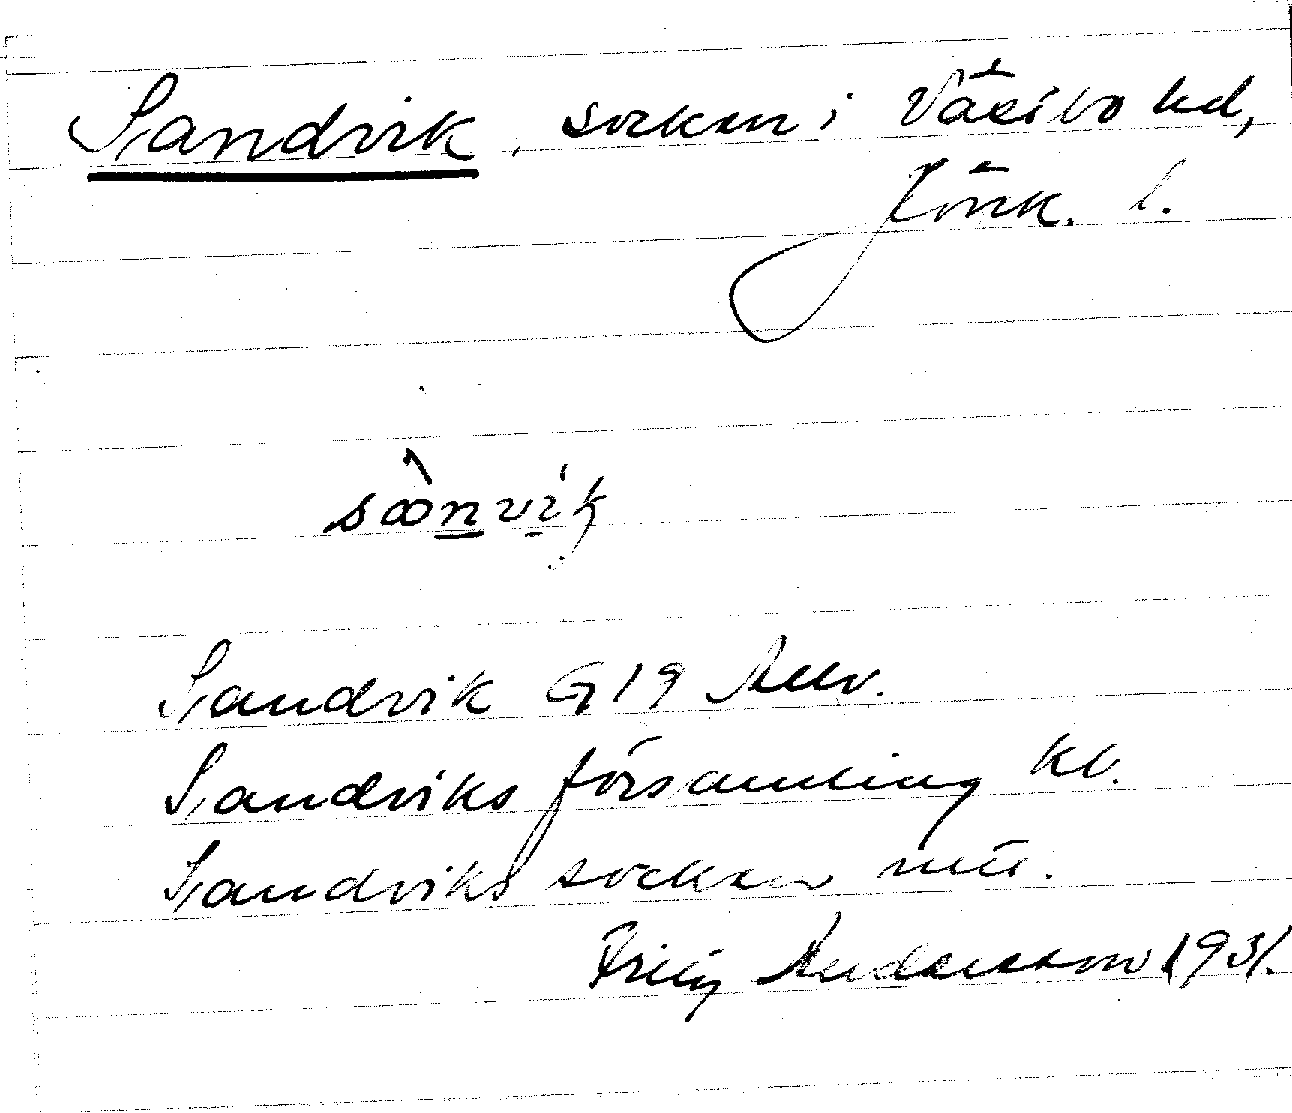 Sandvik, socken i Västbo hd,
Jönk. l.
sànvik
Sandvik G19
Sandviks församling kb.
Sandviks socken
Andersson 1931.